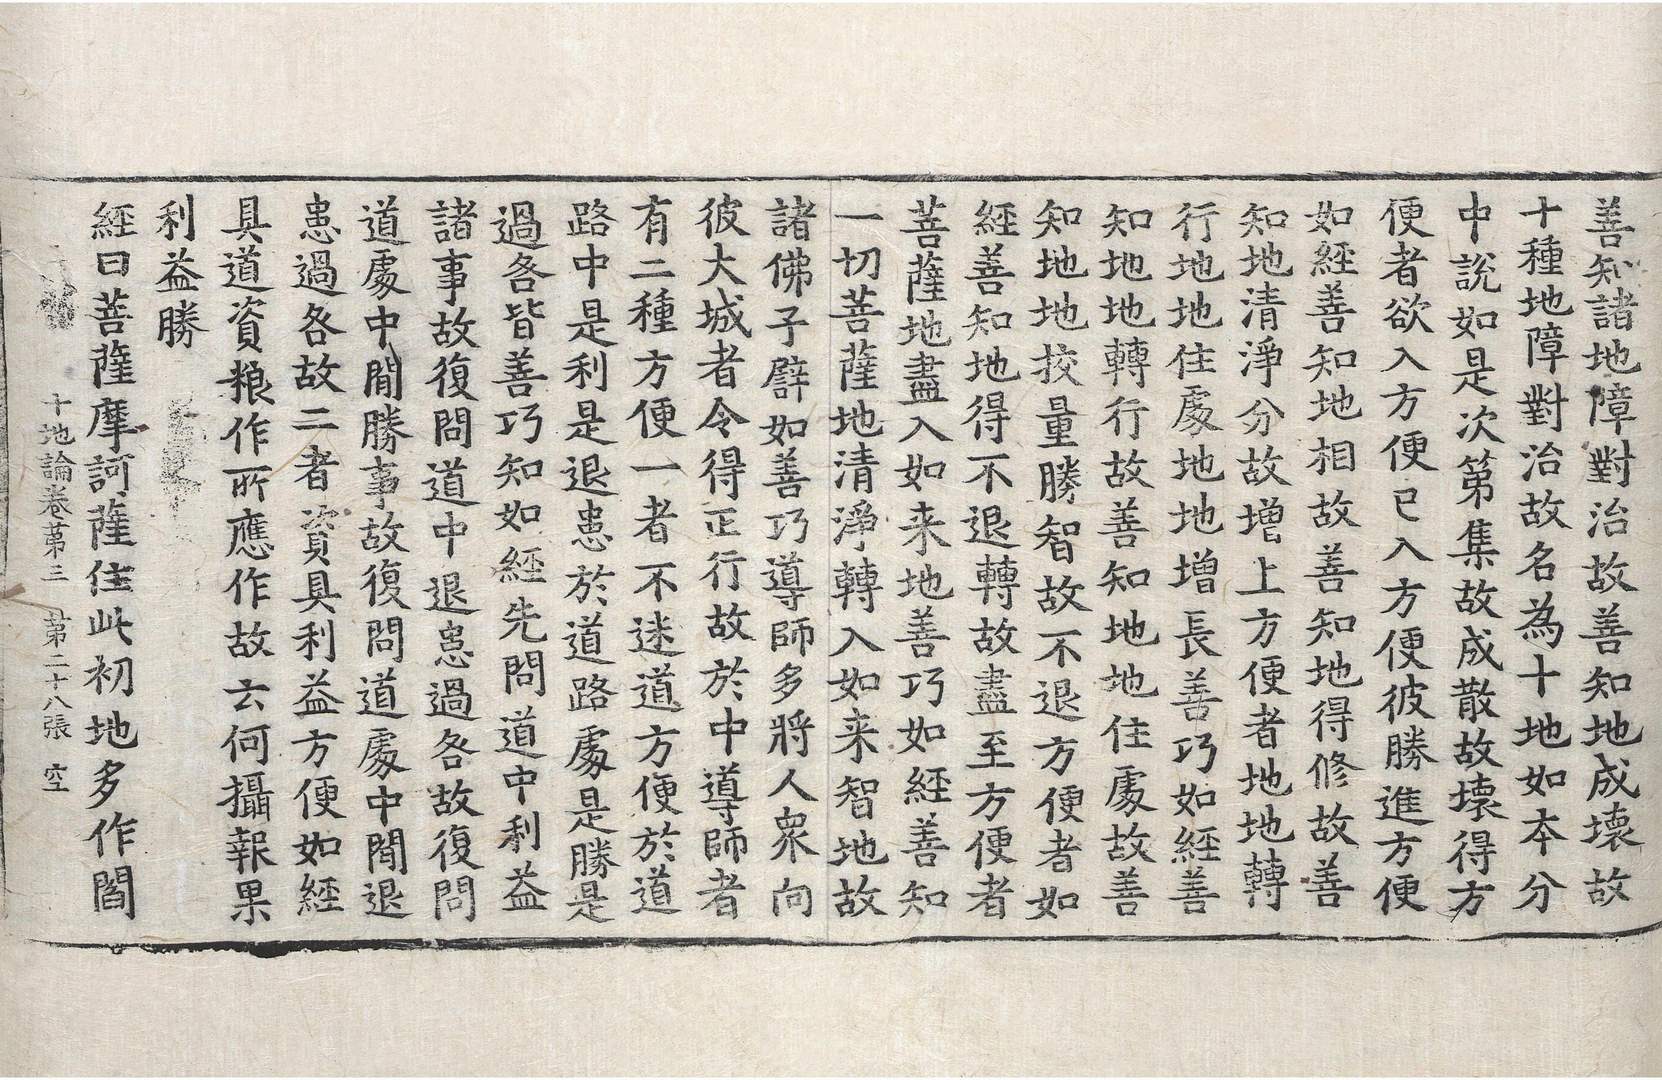 善知諸地障對治故善知地成壞故
十種地障對治故名為十地如本分
中說如是次第集故成散故壞得方
便者欲入方便已入方便彼勝進方便
如經善知地相故善知地得修故善
知地清淨分故增上方便者地地轉
行地地住處地地增長善巧如經善
知地地轉行故善知地地住處故善
知地地挍量勝智故不退方便者如
經善知地得不退轉故盡至方便者
菩薩地盡入如来地善巧如經善知
一切菩薩地清淨轉入如来智地故
諸佛子譬如善巧導師多將人衆向
彼大城者令得正行故於中導師者
有二種方便一者不迷道方便於道
路中是利是退患於道路處是勝是
過咎皆善巧知如經先問道中利益
諸事故復問道中退患過咎故復問
道處中閒勝事故復問道處中閒退
患過咎故二者資具利益方便如經
具道資粮作所應作故云何攝報果
利益勝
經曰菩薩摩訶薩住此初地多作閻
十地論卷第三 第二十八張 空